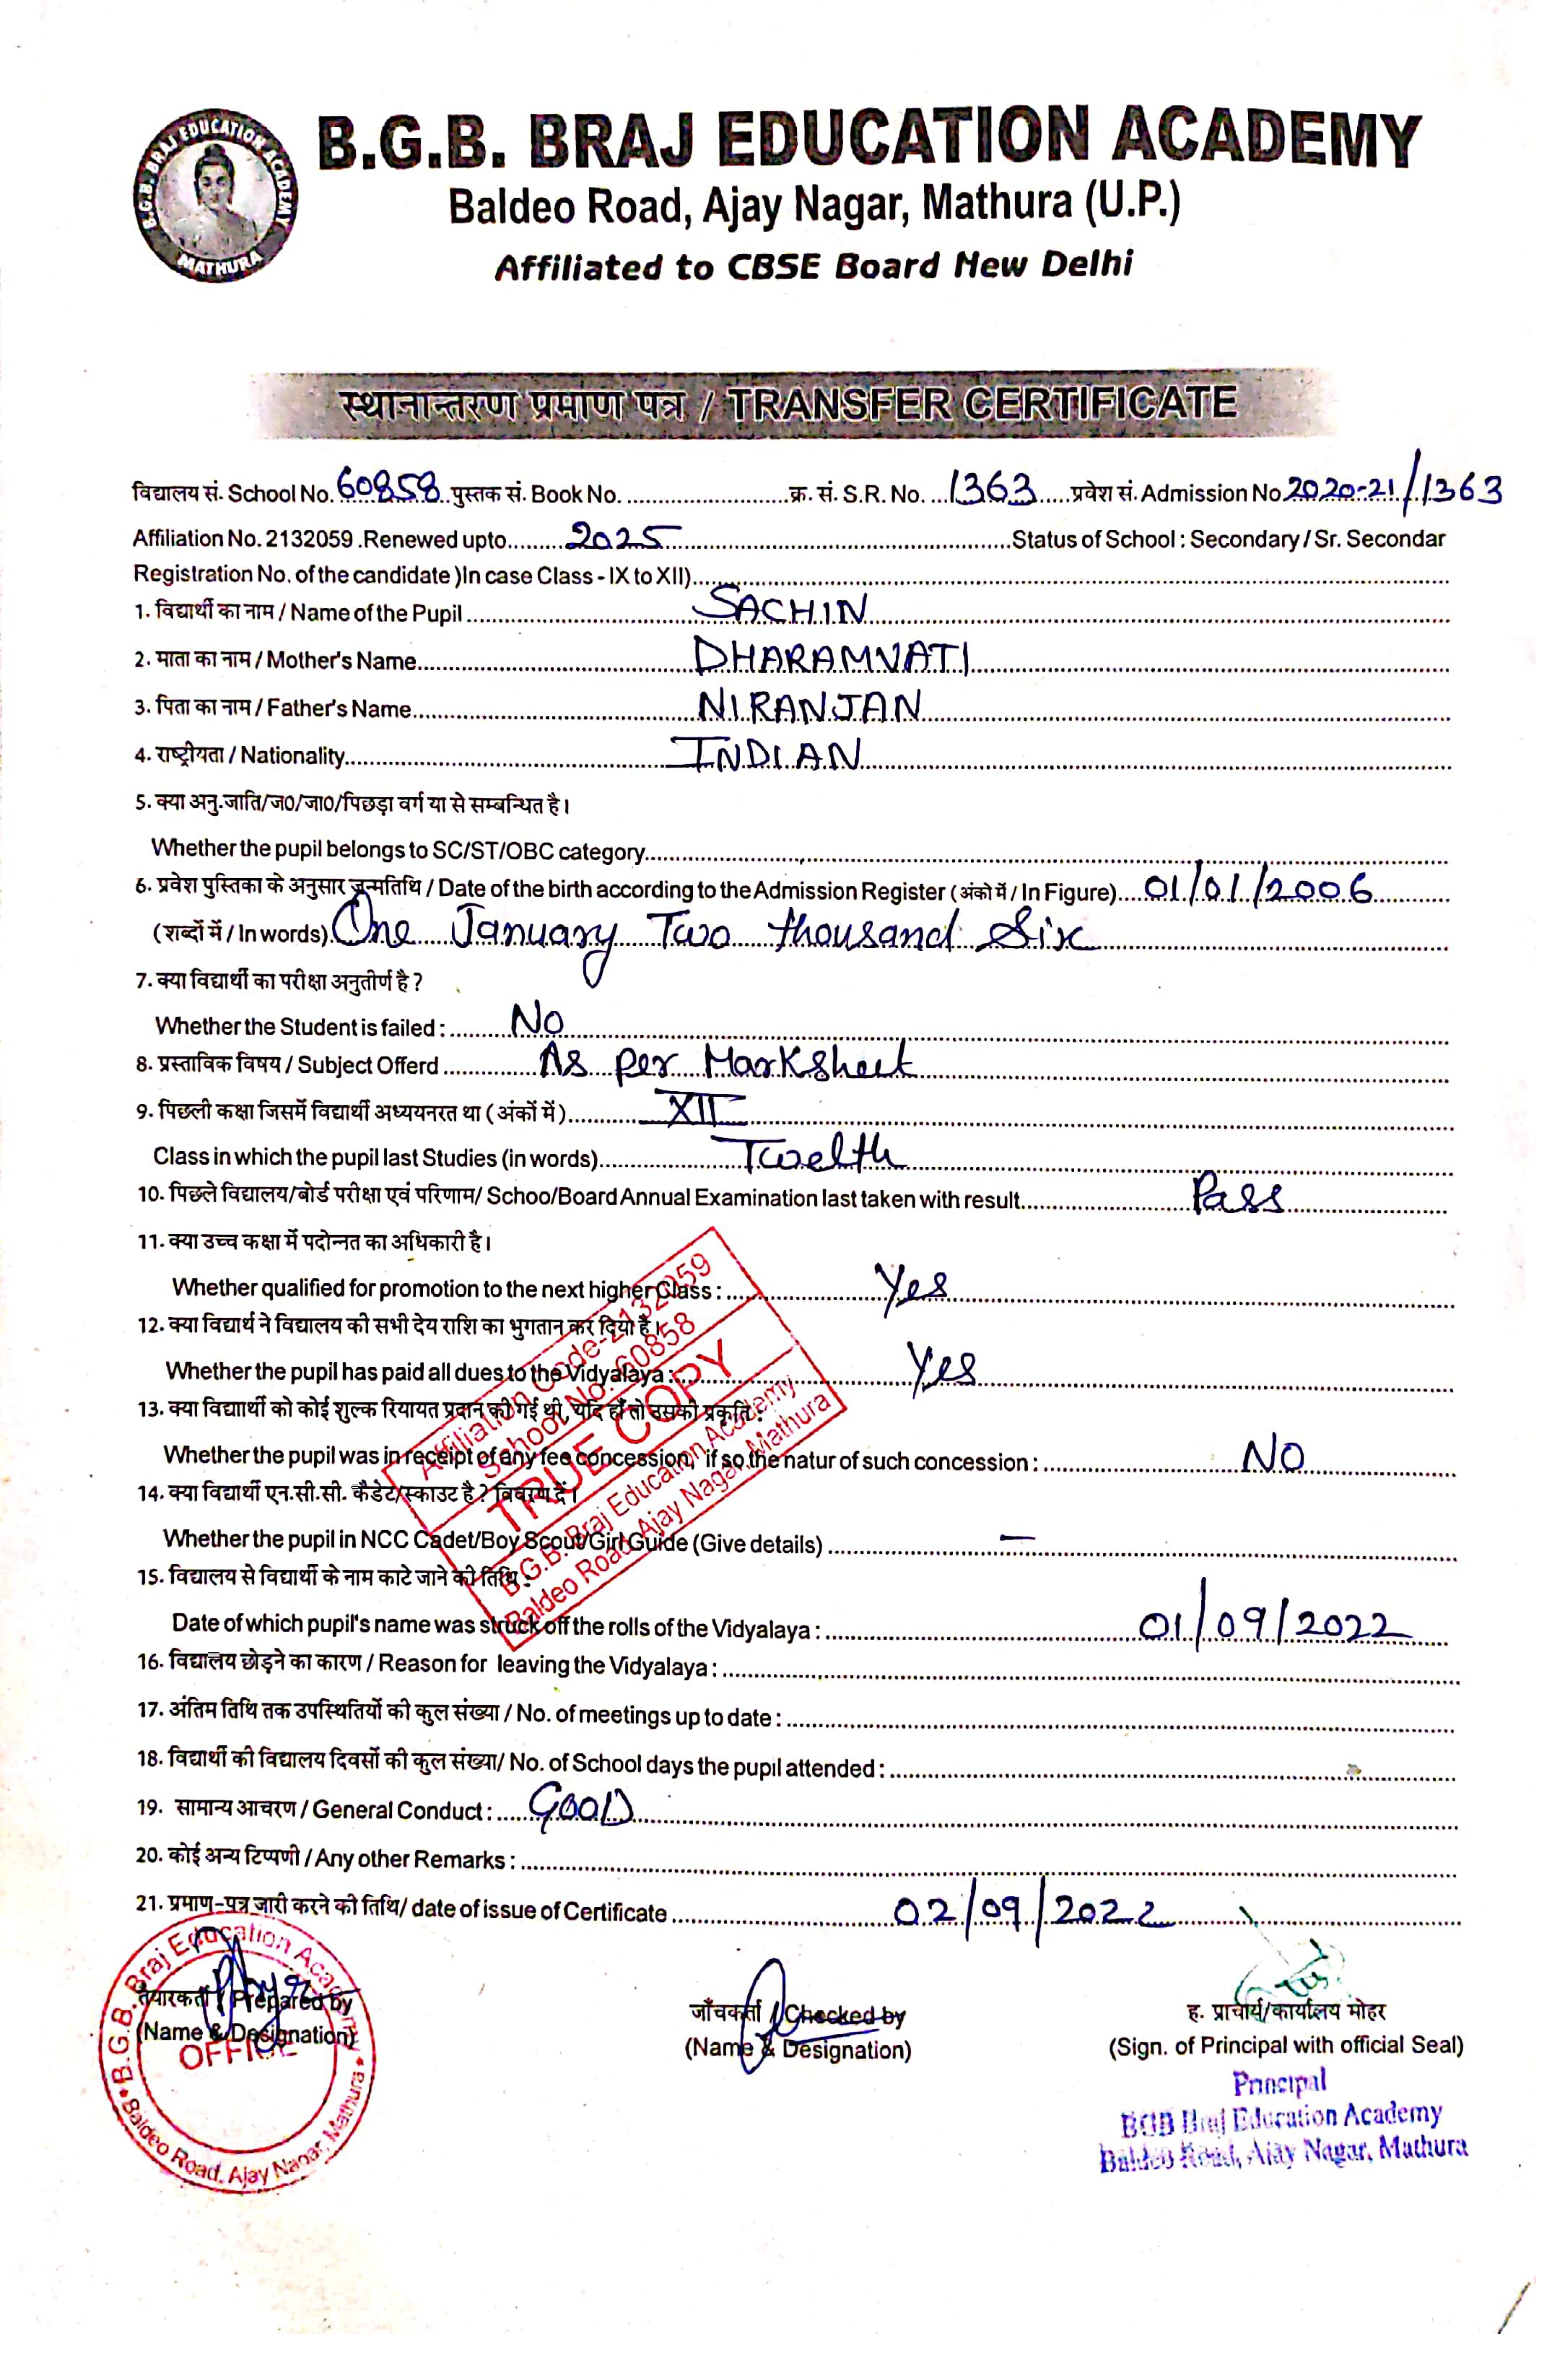 B.G.B. BRAJ EDUCATION ACADEMY
MATHURA
B.G.B. BRAJ EDUCATION ACADEMY
Baldeo Road, Ajay Nagar, Mathura (U.P.)
Affiliated to CBSE Board New Delhi
स्थानान्तरण प्रमाण पत्र / TRANSFER CERTIFICATE
विद्यालय सं. School No. 60858 पुस्तक सं. Book No. ........ क्र. सं. S.R. No. ... 1363 ..... प्रवेश सं. Admission No 2020-21/1363
Affiliation No. 2132059 .Renewed upto........ 2025 ........Status of School : Secondary / Sr. Secondar
Registration No. of the candidate )In case Class - IX to XII)........
1. विद्यार्थी का नाम / Name of the Pupil ........ SACHIN ........
2. माता का नाम / Mother's Name........ DHARAMVATI ........
3. पिता का नाम / Father's Name........ NIRANJAN ........
4. राष्ट्रीयता / Nationality........ INDIAN ........
5. क्या अनु.जाति/ज0/जा0/पिछड़ा वर्ग या से सम्बन्धित है।
Whether the pupil belongs to SC/ST/OBC category........
6. प्रवेश पुस्तिका के अनुसार जन्मतिथि / Date of the birth according to the Admission Register (अंको में / In Figure).... 01/01/2006
(शब्दों में / In words). One January Two thousand Six
7. क्या विद्यार्थी का परीक्षा अनुतीर्ण है ?
Whether the Student is failed : ........ No
8. प्रस्ताविक विषय / Subject Offerd ........ As per Marksheet
9. पिछली कक्षा जिसमें विद्यार्थी अध्ययनरत था ( अंकों में )........ XII
Class in which the pupil last Studies (in words)........ Twelth
10. पिछले विद्यालय/बोर्ड परीक्षा एवं परिणाम/ Schoo/Board Annual Examination last taken with result........ Pass
11. क्या उच्च कक्षा में पदोन्नत का अधिकारी है।
Whether qualified for promotion to the next higher Class : ........ Yes
12. क्या विद्यार्थ ने विद्यालय की सभी देय राशि का भुगतान कर दिया है।
Whether the pupil has paid all dues to the Vidyalaya : ........ Yes
13. क्या विद्यार्थी को कोई शुल्क रियायत प्रदान की गई थी, यदि हाँ तो उसकी प्रकृति :
Whether the pupil was in receipt of any fee concession, if so the natur of such concession : ........ NO
14. क्या विद्यार्थी एन.सी.सी. कैडेट/स्काउट है ? विवरण दें।
Whether the pupil in NCC Cadet/Boy Scout/Girl Guide (Give details) ........ —
15. विद्यालय से विद्यार्थी के नाम काटे जाने की तिथि :
Date of which pupil's name was struck off the rolls of the Vidyalaya : ........ 01/09/2022
Affiliation Code-2132059
School No. 60858
TRUE COPY
B.G.B. Braj Education Academy
Baldeo Road, Ajay Nagar, Mathura
16. विद्यालय छोड़ने का कारण / Reason for leaving the Vidyalaya : ........
17. अंतिम तिथि तक उपस्थितियों की कुल संख्या / No. of meetings up to date : ........
18. विद्यार्थी की विद्यालय दिवसों की कुल संख्या/ No. of School days the pupil attended : ........
19. सामान्य आचरण / General Conduct : ..... GOOD
20. कोई अन्य टिप्पणी / Any other Remarks : ........
21. प्रमाण-पत्र जारी करने की तिथि/ date of issue of Certificate ........ 02/09/2022
तैयारकर्ता / Prepared by
(Name & Designation)
B.G.B. Braj Education Academy
OFFICE
Baldeo Road, Ajay Nagar, Mathura
जाँचकर्ता / Checked by
(Name & Designation)
ह. प्राचार्य/कार्यालय मोहर
(Sign. of Principal with official Seal)
Principal
BGB Braj Education Academy
Baldeo Road, Ajay Nagar, Mathura